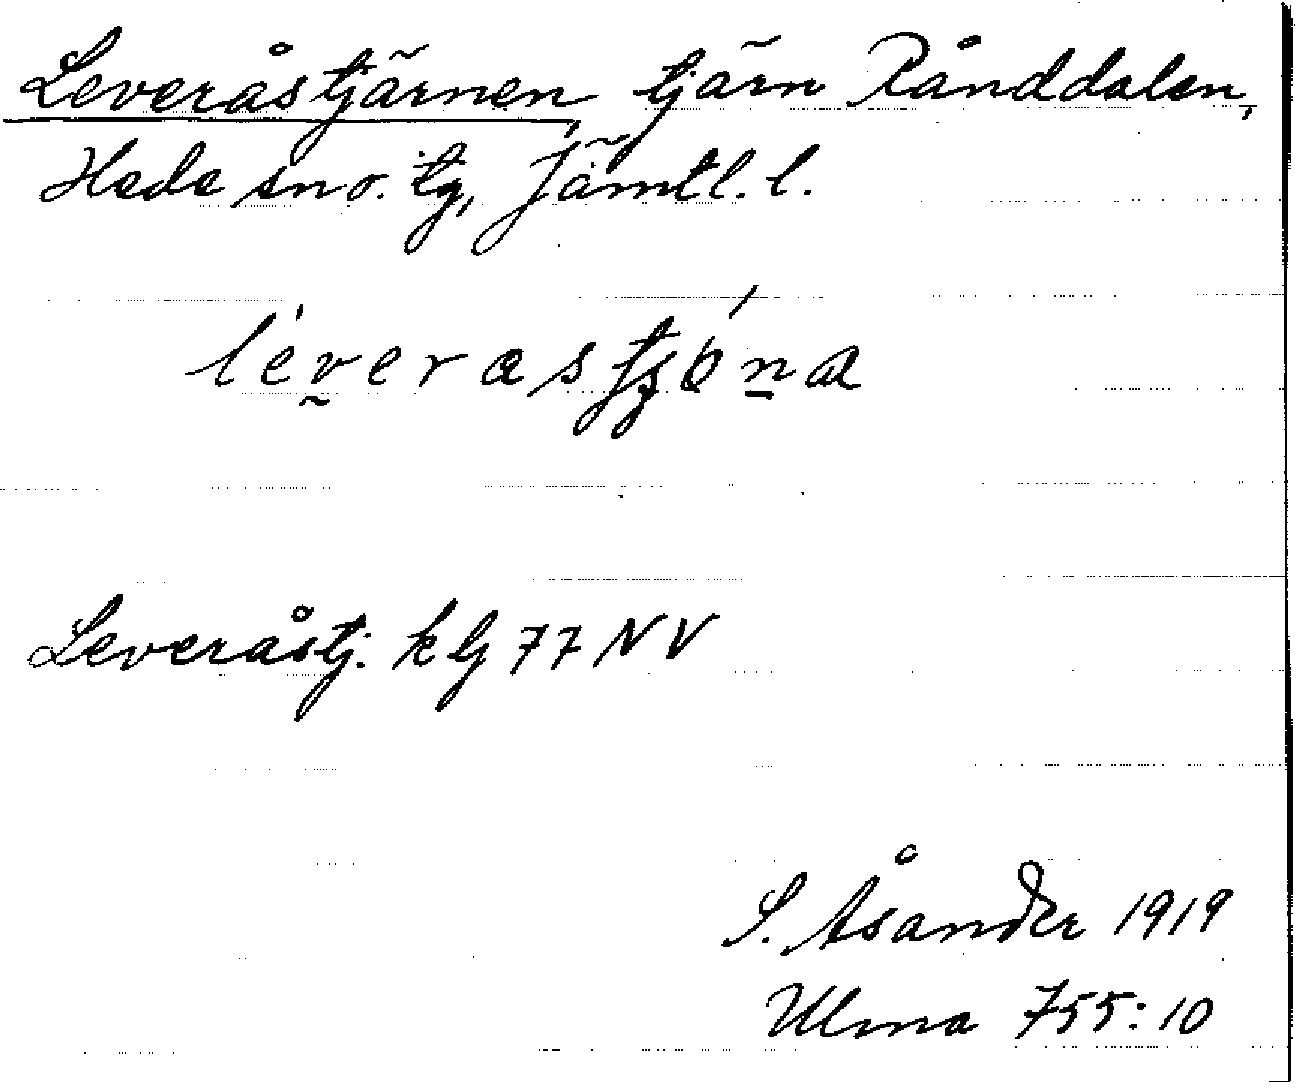 Leveråstjärnen tjärn Rånddalen,
Hede sn o. tg, Jämtl. l.
Leveråstj. kbl 77 NV
S. Åsander 1919
Ulma 755:10